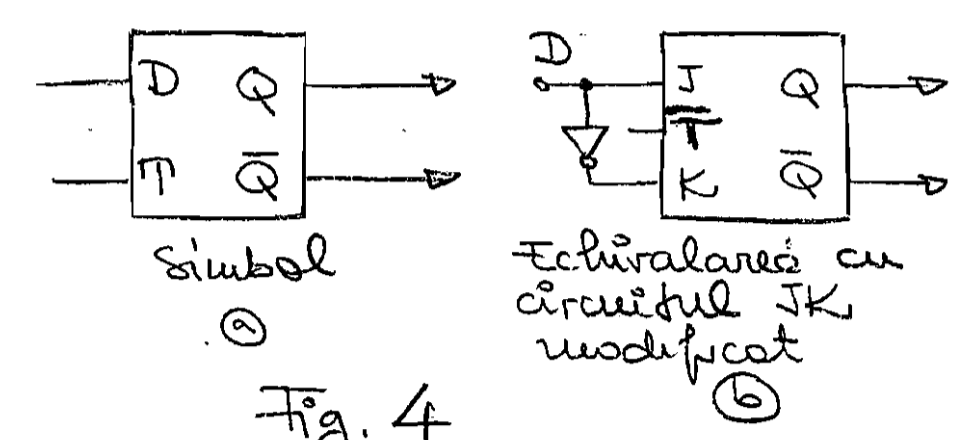 D Q
T Q̅
Simbol
a
D
J Q
T̅
K Q̅
Echivalarea cu
circuitul JK
modificat
b
Fig. 4